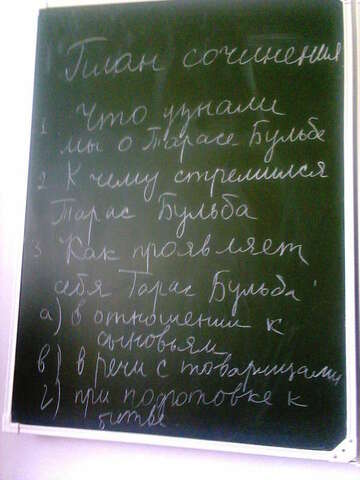 План сочинения
1 Что узнали
мы о Тарасе Бульбе
2 К чему стремился
Тарас Бульба
3 Как проявляет
себя Тарас Бульба
а) в отношении к
сыновьям
в) в речи с товарищами
г) при подготовке к
битве